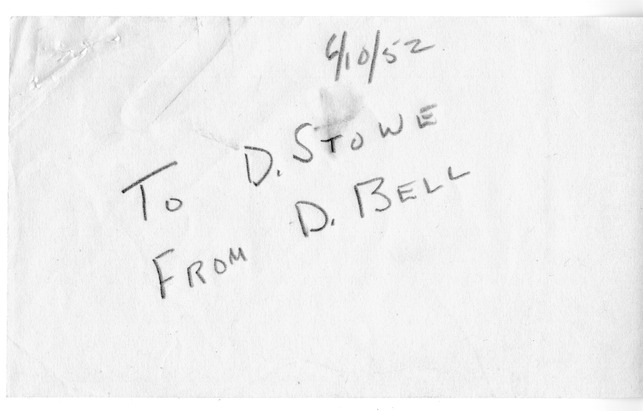 6/10/52
To D. STOWE
FROM D. BELL